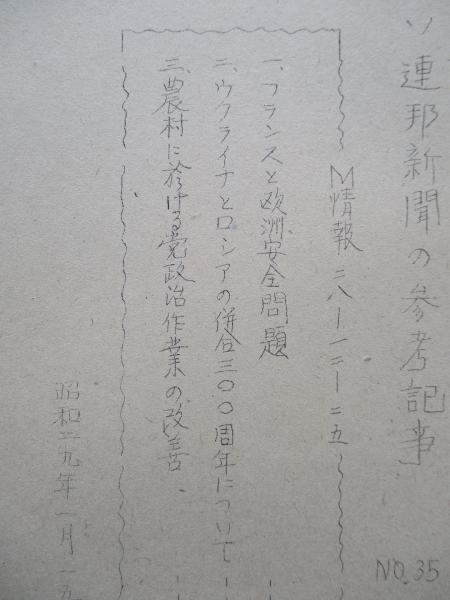 ソ連邦新聞の参考記事
NO.35
M情報二八ー一二ー二五
一、フランスと欧洲安全問題
二、ウクライナとロシアの併合三〇〇周年について
三、農村に於ける党政治作業の改善
昭和二九年一月一五